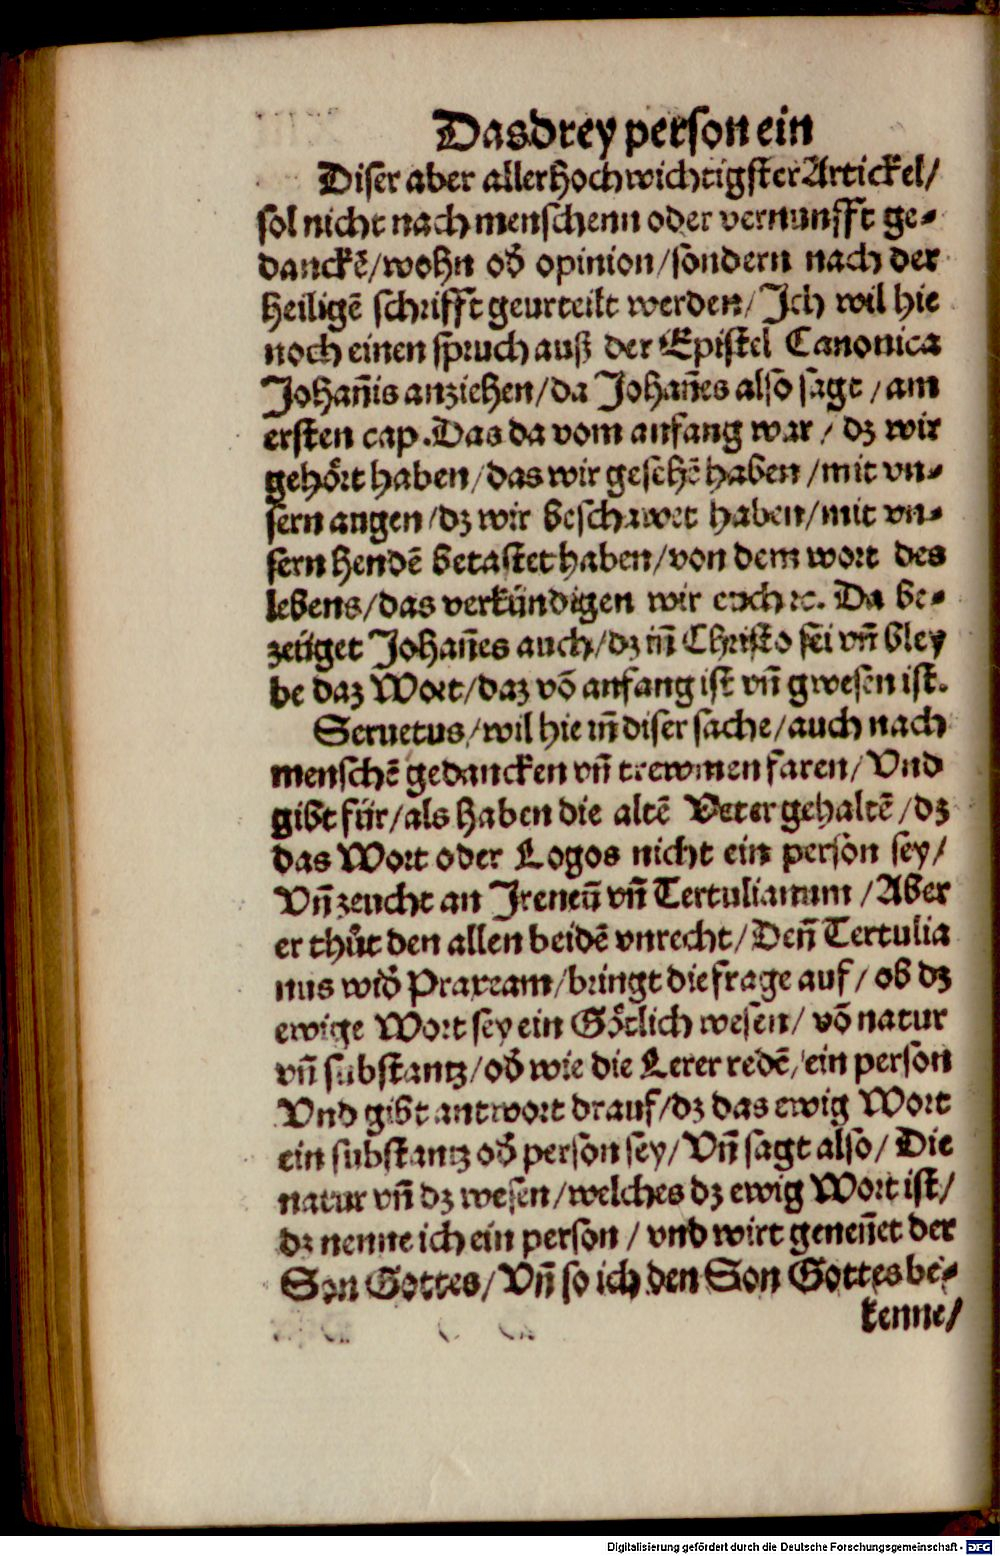 Das drey person ein
Diser aber aller hoch wichtigster Artickel/
sol nicht nach menschenn oder vernunfft ge⸗
danckē/wohn od̕ opinion/sondern nach der
heiligē schrifft geurteilt werden/Ich wil hie
noch einen spruch auß der Epistel Canonica
Johan̄is anziehen/da Johan̄es also sagt/am
ersten cap. Das da vom anfang war/dz wir
gehört haben/das wir gesehē haben/mit vn⸗
sern augen/dz wir beschawet haben/mit vn⸗
sern hendē betastet haben/von dem wort des
lebens/das verkündigen wir euch ꝛc. Da be⸗
zeüget Johan̄es auch/dz in̄ Christo sei vn̄ bley
be daz Wort/daz vō anfang ist vn̄ gwesen ist.
Seruetus/wil hie in̄ diser sache/auch nach
menschē gedancken vn̄ trewmen faren/Vnd
gibt für/als haben die altē Veter gehaltē/dz
das Wort oder Logos nicht ein person sey/
Vn̄ zeucht an Ireneū vn̄ Tertulianum/Aber
er thůt den allen beidē vnrecht/Den̄ Tertulia
nus wid̕ Praxeam/bringt die frage auf/ob dz
ewige Wort sey ein Götlich wesen/vō natur
vn̄ substantz/od̕ wie die Lerer redē/ein person
Vnd gibt antwort drauf/dz das ewig Wort
ein substantz od̕ person sey/Vn̄ sagt also/Die
natur vn̄ dz wesen/welches dz ewig Wort ist/
dz nenne ich ein person/vnd wirt genen̄et der
Son Gottes/Vn̄ so ich den Son Gottes be⸗
kenne/
Digitalisierung gefördert durch die Deutsche Forschungsgemeinschaft - DFG